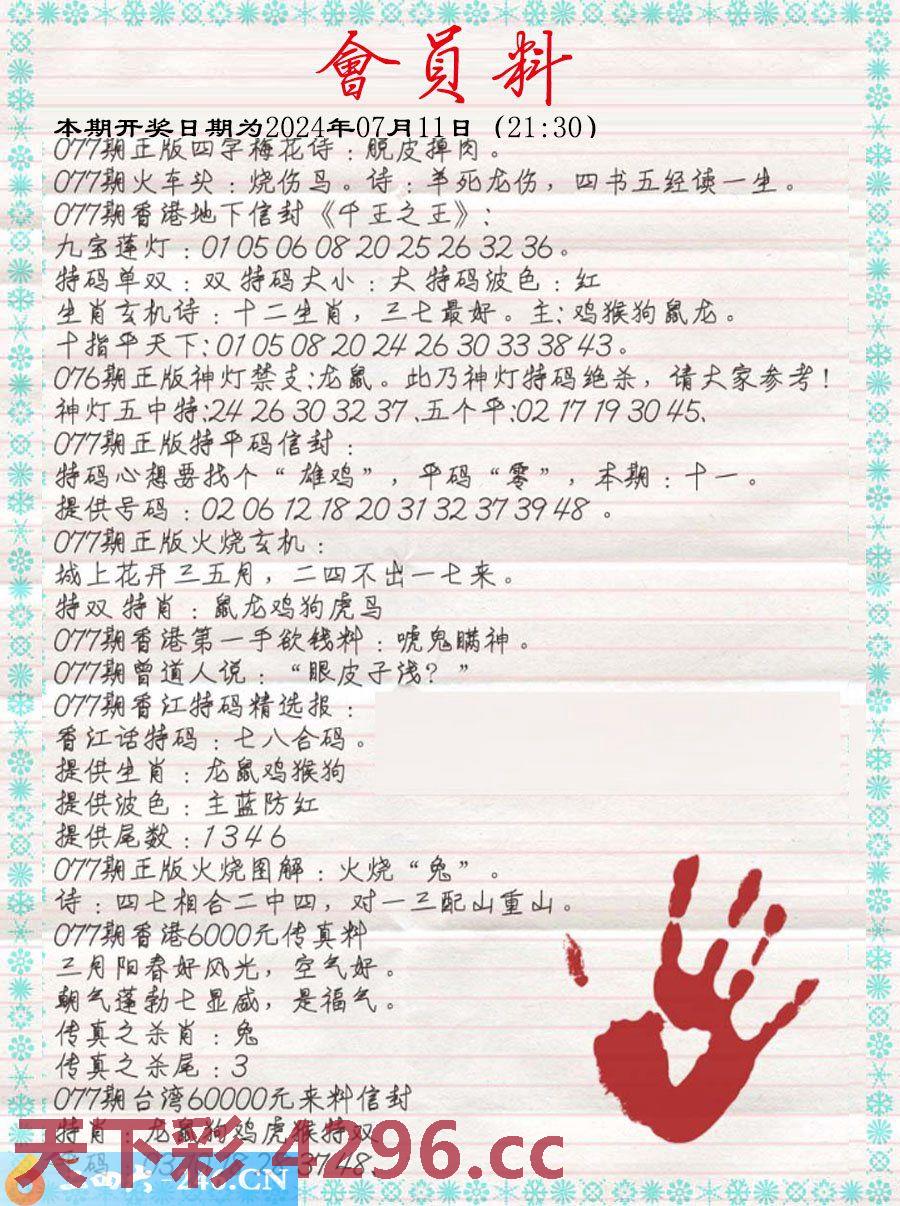 會員料
本期开奖日期为2024年07月11日（21:30）
077期正版四字梅花诗：脱皮掉肉。
077期火车头：烧伤鸟。诗：羊死龙伤，四书五经读一生。
077期香港地下信封《千王之王》：
九宝莲灯：01 05 06 08 20 25 26 32 36。
特码单双：双 特码大小：大 特码波色：红
生肖玄机诗：十二生肖，三七最好。主：鸡猴狗鼠龙。
十指平天下：01 05 08 20 24 26 30 33 38 43。
076期正版神灯禁支：龙鼠。此乃神灯特码绝杀，请大家参考！
神灯五中特：24 26 30 32 37、五个平：02 17 19 30 45、
077期正版特平码信封：
特码心想要找个“雄鸡”，平码“零”，本期：十一。
提供号码：02 06 12 18 20 31 32 37 39 48 。
077期正版火烧玄机：
城上花开三五月，二四不出一七来。
特双 特肖：鼠龙鸡狗虎马
077期香港第一手欲钱料：唬鬼瞒神。
077期曾道人说：“眼皮子浅？”
077期香江特码精选报：
香江话特码：七八合码。
提供生肖：龙鼠鸡猴狗
提供波色：主蓝防红
提供尾数：1 3 4 6
077期正版火烧图解：火烧“兔”。
诗：四七相合二中四，对一三配山重山。
077期香港6000元传真料
三月阳春好风光，空气好。
朝气蓬勃七显威，是福气。
传真之杀肖：兔
传真之杀尾：3
077期台湾60000元来料信封
特肖：龙鼠狗鸡虎猴特双
天下彩 4296.cc
37 48、
-246.CN